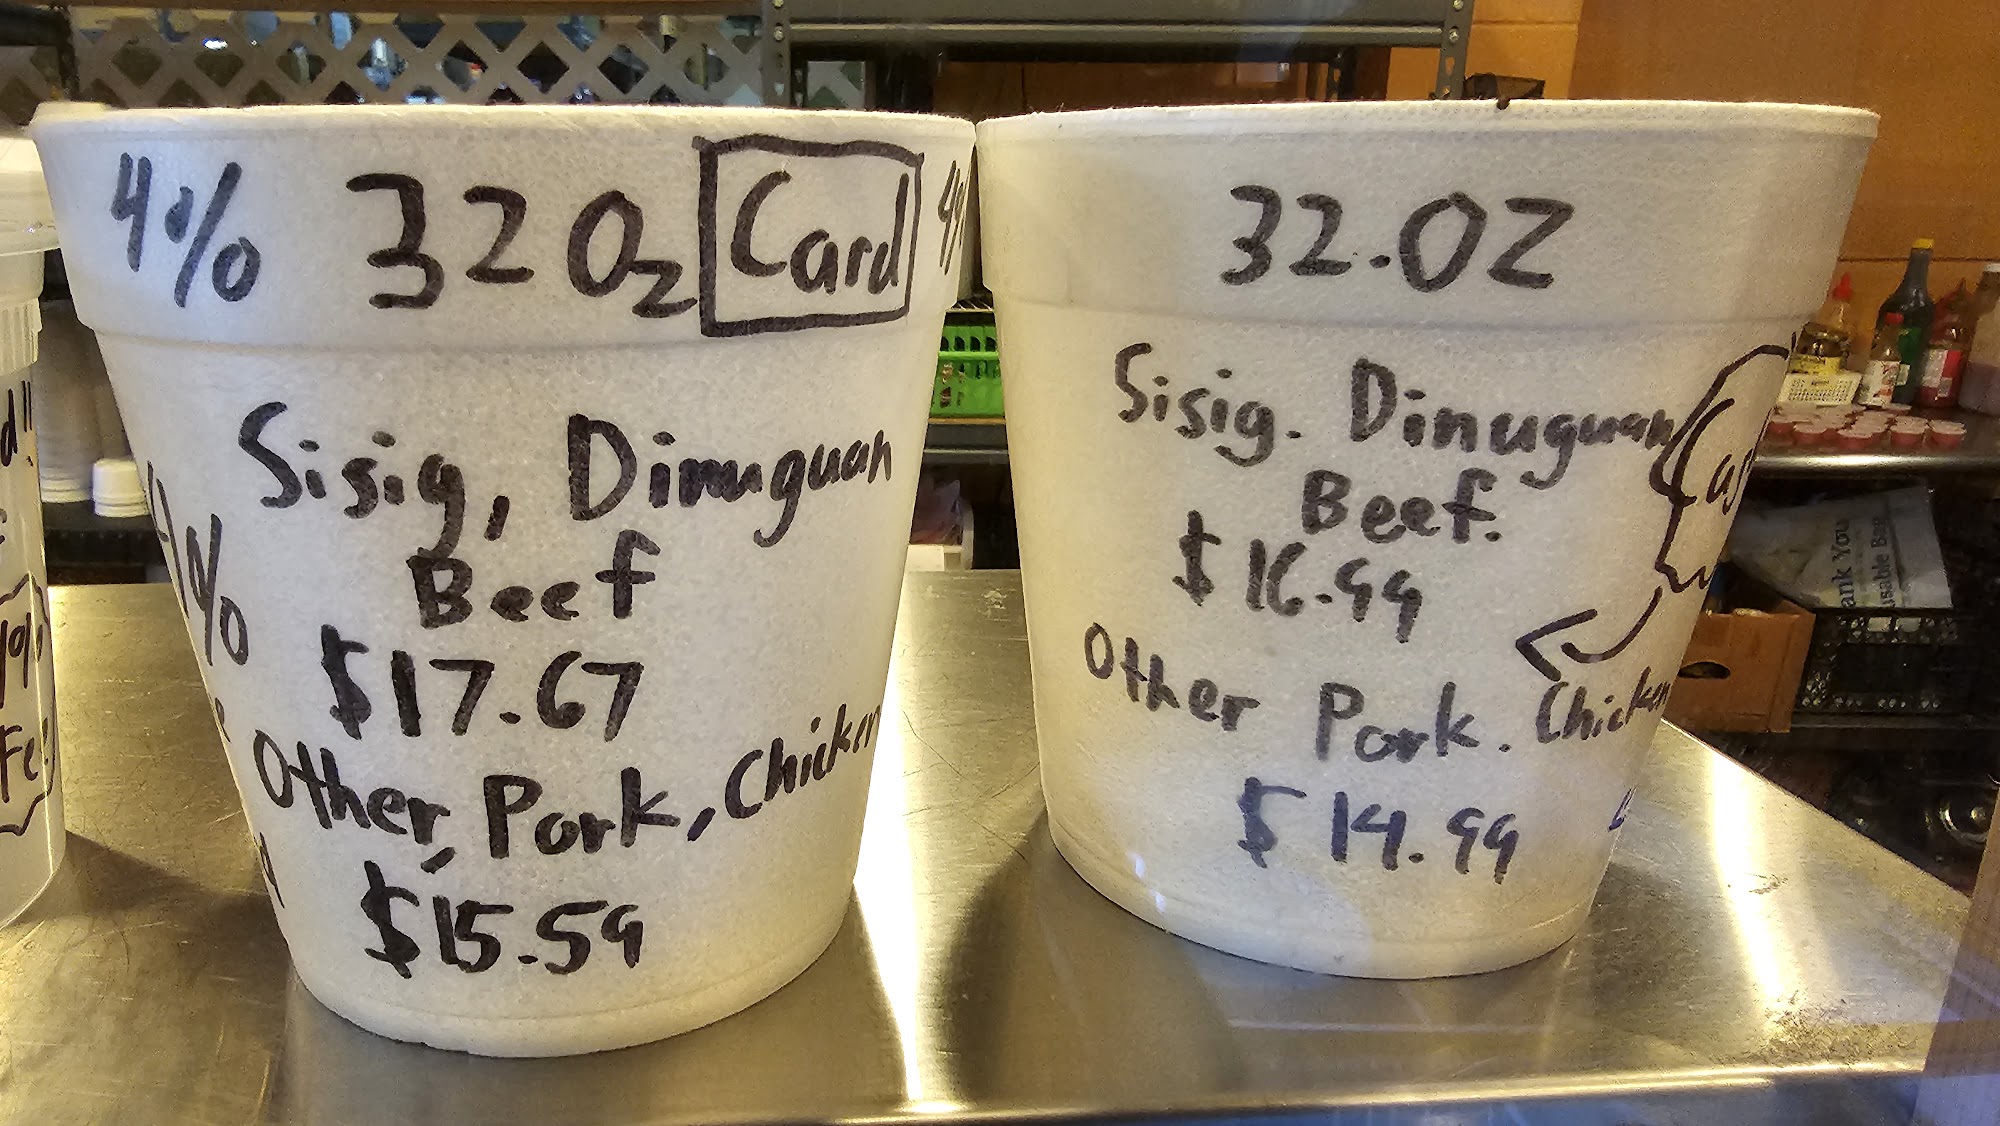 4% 32 Oz Card 4%
Sisig, Dinuguan
Beef
$17.67
Other, Pork, Chicken
$15.59
4%
32.OZ
Sisig. Dinuguan
Beef.
$16.99
Other Pork. Chicken
$14.99
Thank You